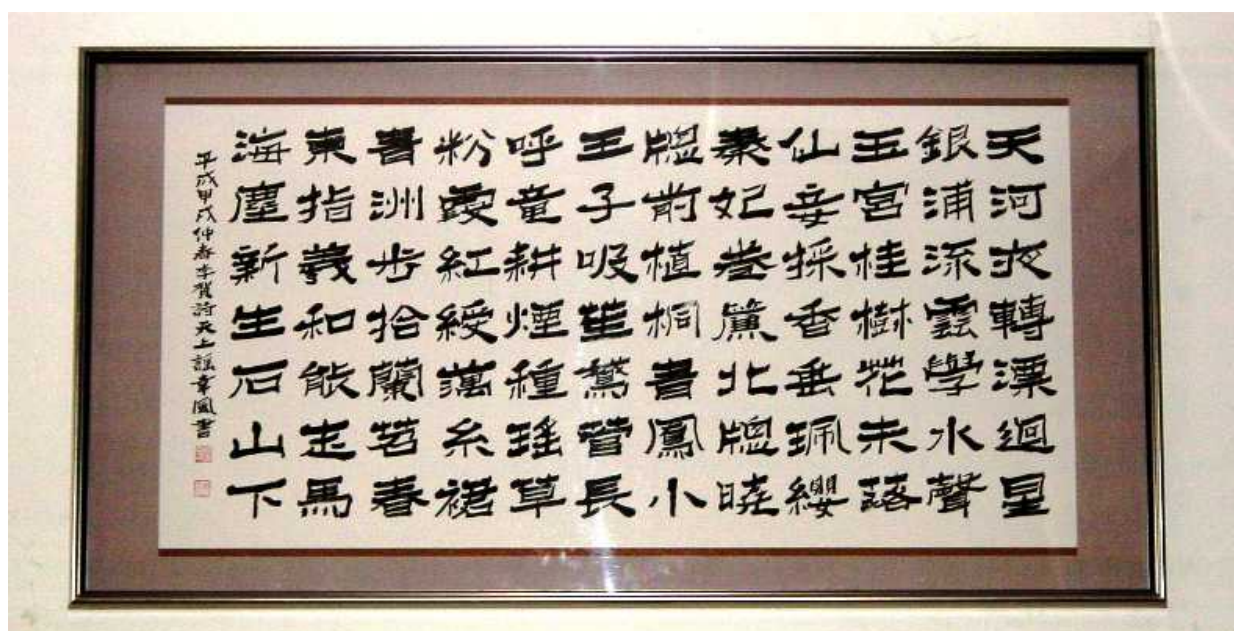 天河夜轉漂迴星
銀浦流雲學水聲
玉宮桂樹花未落
仙妾採香垂珮纓
秦妃巻簾北牕曉
牕前植桐青鳳小
王子吹笙鵞管長
呼竜耕煙種瑤草
粉霞紅綬藕糸裙
青洲步拾蘭苕春
東指羲和能走馬
海塵新生石山下
平成甲戌仲春李賀詩天上謡章書